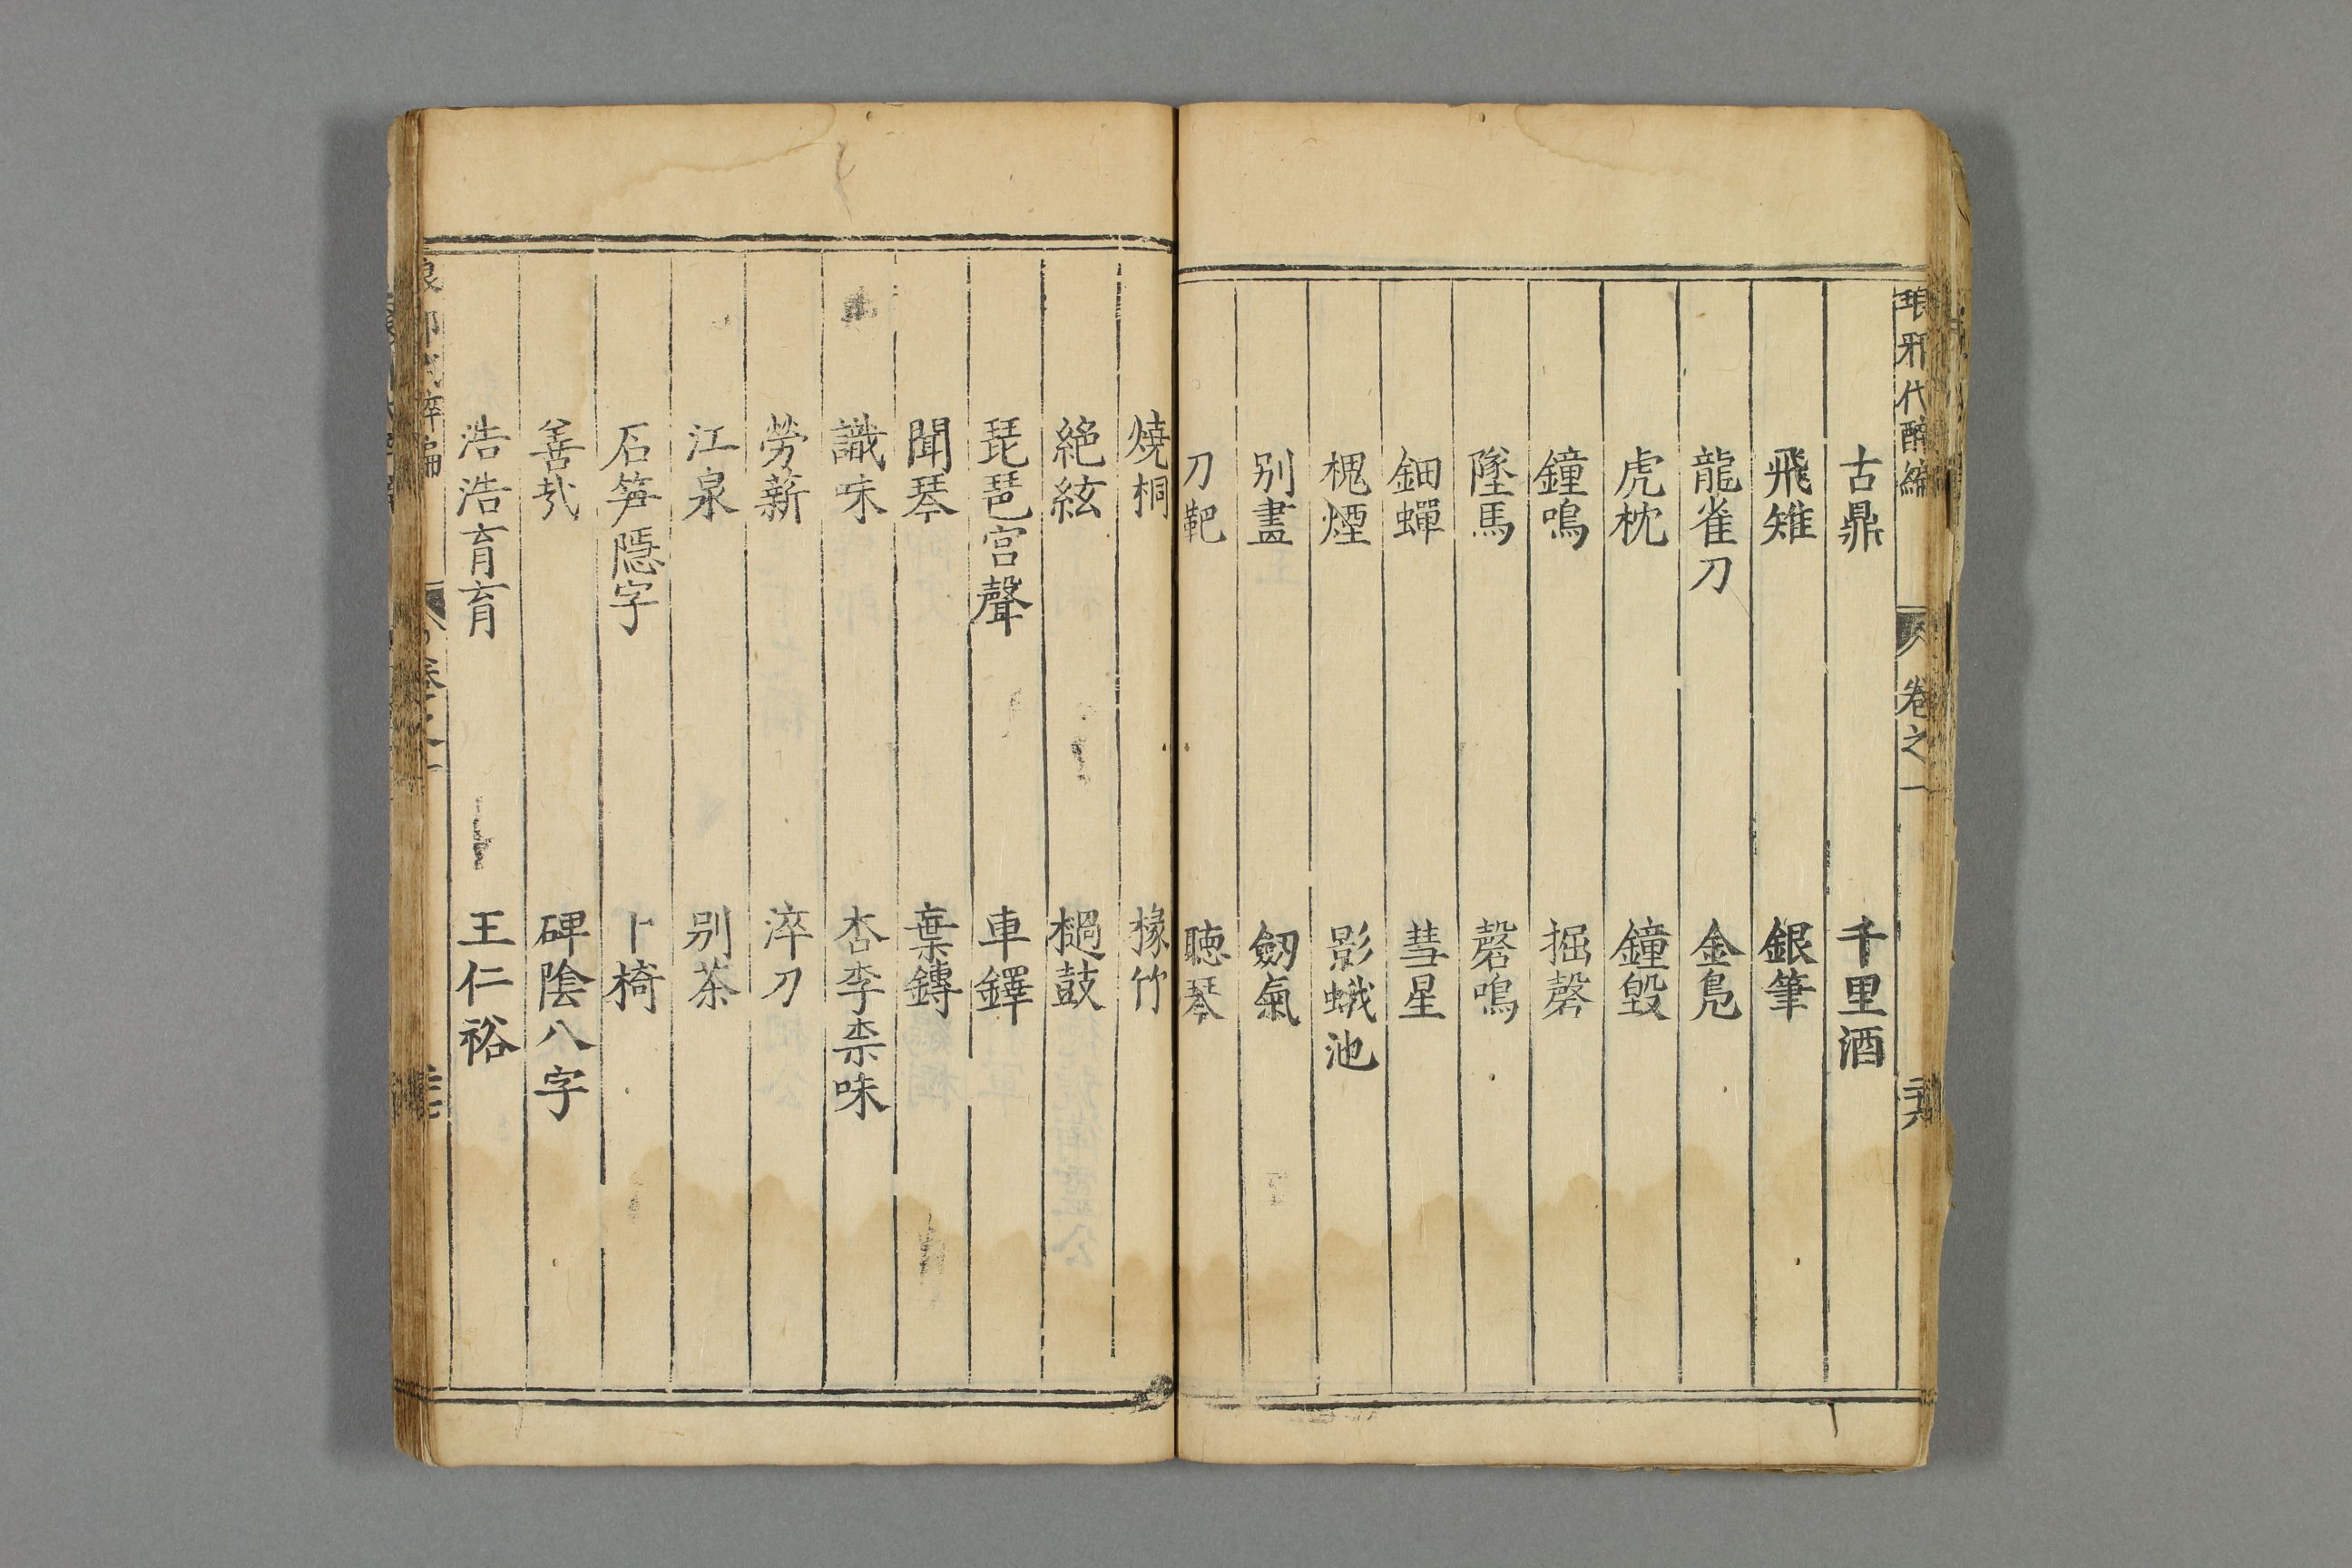 琅邪代醉編 卷之一 二十六
古鼎 千里酒
飛雉 銀筆
龍雀刀 金鳬
虎枕 鐘毀
鐘鳴 掘磬
墜馬 磬鳴
鈿蟬 彗星
槐煙 影蛾池
别畫 劒氣
刀靶 聴琴
燒桐 椽竹
絶絃 檛鼓
琵琶宫聲 車鐸
聞琴 葉鏄
識味 杏李柰味
勞薪 淬刀
江泉 别茶
石笋隱字 卜椅
善㢤 碑陰八字
浩浩育育 王仁裕
卷之一